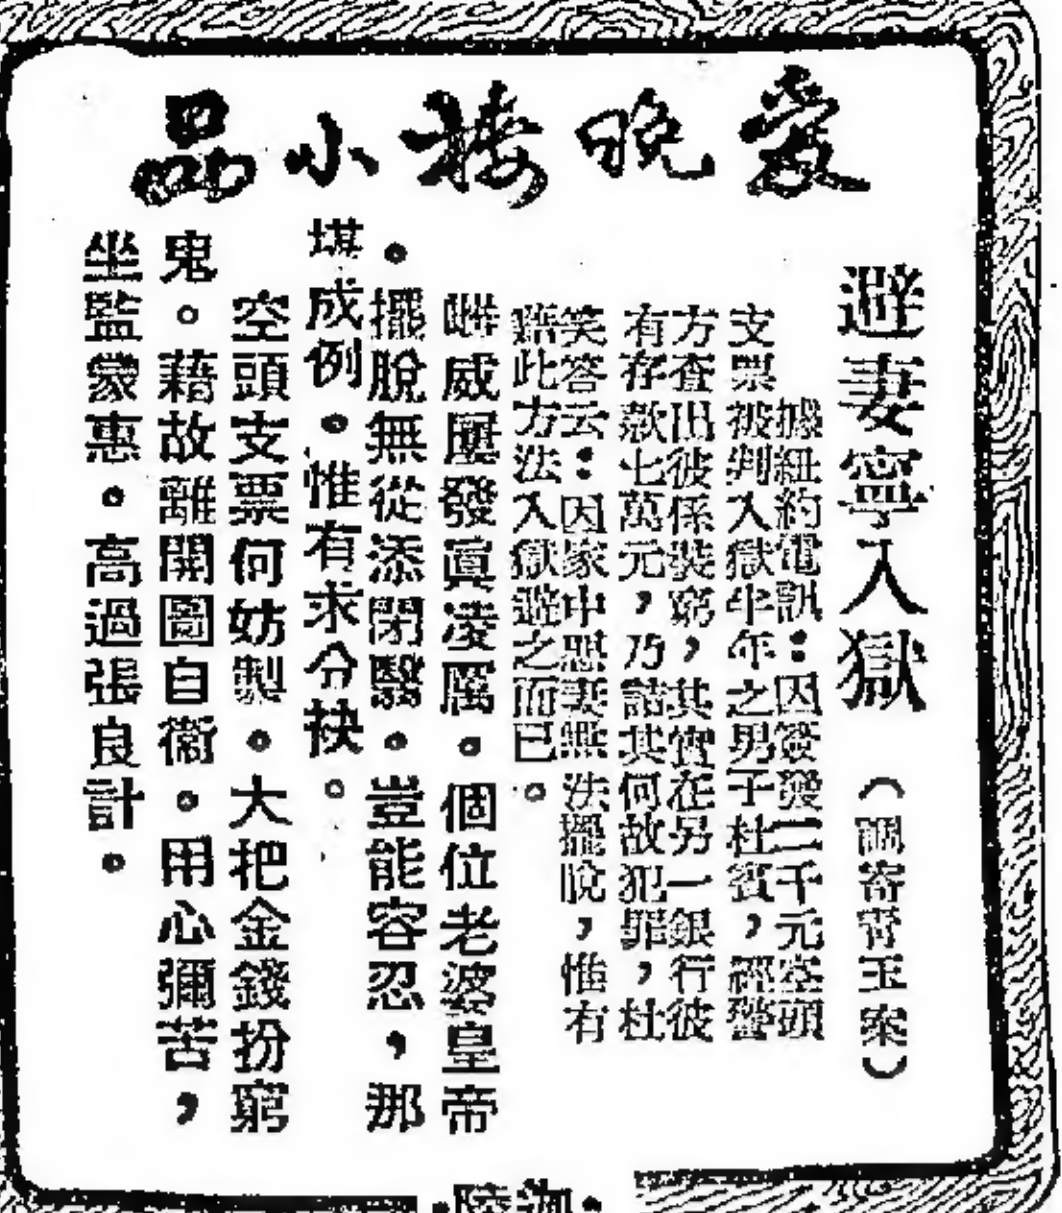 愛晚樓小品
避妻寧入獄（調寄青玉案）
據紐約電訊：因簽發二千元空頭
支票被判入獄半年之男子杜賓，經警
方查出彼係裝窮，其實在另一銀行彼
有存款七萬元，乃詰其何故犯罪，杜
笑答云：因家中惡妻無法擺脫，惟有
藉此方法入獄避之而已。
雌威壓發眞凌厲。個位老婆皇帝
。擺脫無從添閉翳。豈能容忍，那
堪成例。惟有求分袂。
空頭支票何妨製。大把金錢扮窮
鬼。藉故離開圖自衞。用心彌苦，
坐監蒙惠。高過張良計。